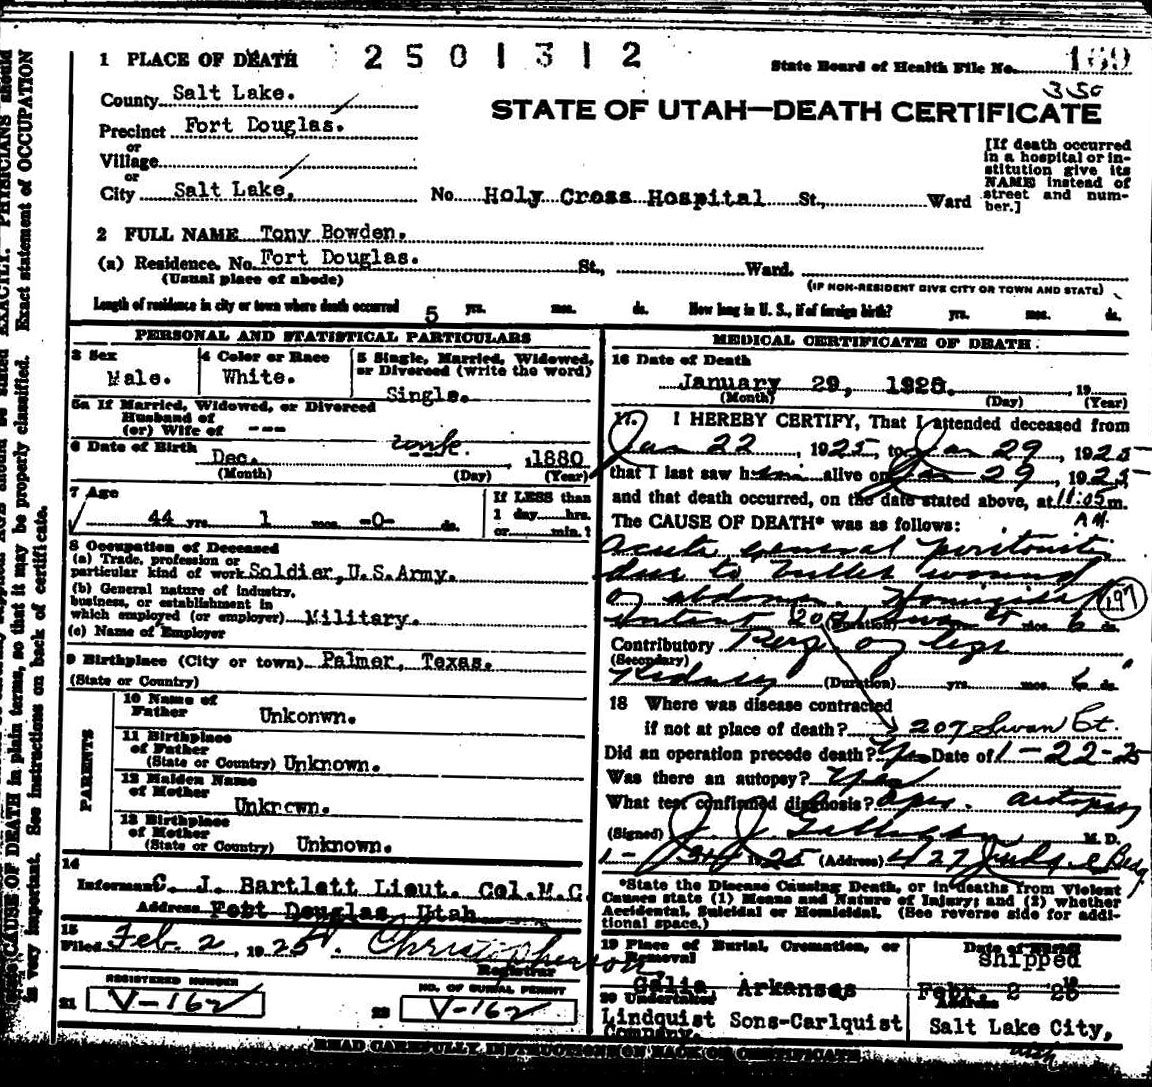 1 PLACE OF DEATH 2501312 State Board of Health File No. 169
350
County Salt Lake.
STATE OF UTAH—DEATH CERTIFICATE
Precinct Fort Douglas.
or
Village
or
City Salt Lake, No. Holy Cross Hospital St., Ward
[If death occurred
in a hospital or in-
stitution give its
NAME instead of
street and num-
ber.]
2 FULL NAME Tony Bowden.
(a) Residence. No. Fort Douglas. St., Ward.
(Usual place of abode) (IF NON-RESIDENT GIVE CITY OR TOWN AND STATE)
Length of residence in city or town where death occurred 5 yrs. mos. ds. How long in U. S., if of foreign birth? yrs. mos. ds.
PERSONAL AND STATISTICAL PARTICULARS
3 Sex 4 Color or Race 5 Single, Married, Widowed,
or Divorced (write the word)
Male. White. Single.
5a If Married, Widowed, or Divorced
Husband of
(or) Wife of ---
6 Date of Birth Dec. unk. , 1880
(Month) (Day) (Year)
7 Age If LESS than
44 yrs. 1 mos. -0- ds. 1 day hrs.
or min.?
8 Occupation of Deceased
(a) Trade, profession or
particular kind of work Soldier, U.S.Army.
(b) General nature of industry,
business, or establishment in
which employed (or employer) Military.
(c) Name of Employer
9 Birthplace (City or town) Palmer, Texas.
(State or Country)
PARENTS
10 Name of
Father Unkonwn.
11 Birthplace
of Father
(State or Country) Unknown.
12 Maiden Name
of Mother Unknown.
13 Birthplace
of Mother
(State or Country) Unknown.
14
Informant C. J. Bartlett Lieut. Col.M.C.
Address Fort Douglas, Utah
15
Filed Feb. 2, 1925 Christopherson
Registrar
REGISTERED NUMBER NO. OF BURIAL PERMIT
21 V-162 22 V-162
MEDICAL CERTIFICATE OF DEATH.
16 Date of Death
January 29, 1925. 19
(Month) (Day) (Year)
17. I HEREBY CERTIFY, That I attended deceased from
Jan 22, 1925, to Jan 29, 1925
that I last saw him alive on Jan 29, 1925
and that death occurred, on the date stated above, at 11:05 m.
A.M.
The CAUSE OF DEATH* was as follows:
Acute general peritonitis
due to bullet wound
of abdomen. Homicidal 197
(Duration) mos. 6 ds.
Contributory
(Secondary)
Kidney (Duration) yrs. mos. 6 ds.
18 Where was disease contracted
if not at place of death? 207 Swan Ct.
Did an operation precede death? Yes Date of 1-22-25
Was there an autopsy? Yes
What test confirmed diagnosis? Oper. autopsy
(Signed) J. J. M. D.
1- 1925 (Address) 427 Judge Bldg.
*State the Disease Causing Death, or in deaths from Violent
Causes state (1) Means and Nature of Injury; and (2) whether
Accidental, Suicidal or Homicidal. (See reverse side for addi-
tional space.)
19 Place of Burial, Cremation, or
Removal
Date of
Shipped
Arkansas Febr 2 25
20 Undertaker Address
Lindquist Sons-Carlquist
Company.
Salt Lake City,
Utah
READ CAREFULLY INSTRUCTIONS ON BACK OF CERTIFICATE
EXACTLY. PHYSICIANS should
Exact statement of OCCUPATION
CAUSE OF DEATH in plain terms, so that it may be properly classified.
is very important. See instructions on back of certificate.